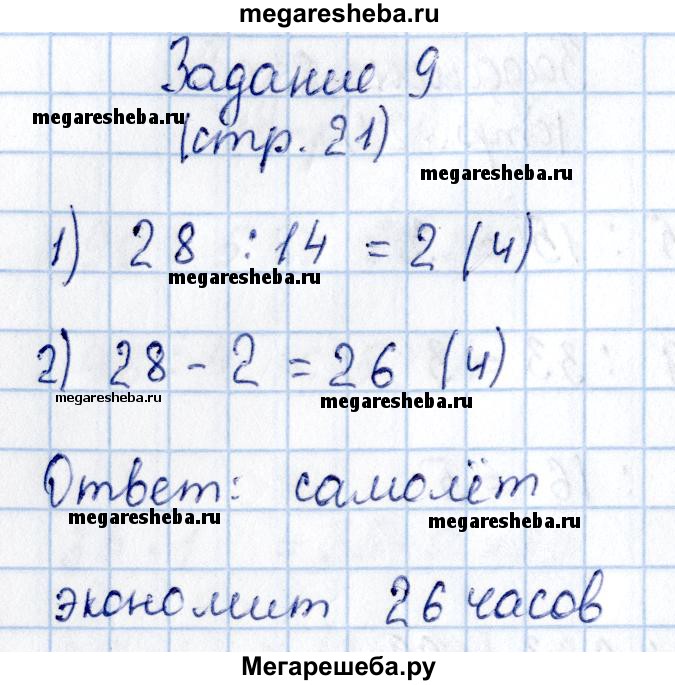 megaresheba.ru
Задание 9
megaresheba.ru
(стр. 21)
megaresheba.ru
1) 28 : 14 = 2 (ч)
megaresheba.ru
2) 28 - 2 = 26 (ч)
megaresheba.ru
megaresheba.ru
Ответ: самолёт
megaresheba.ru
megaresheba.ru
экономит 26 часов
Мегарешеба.ру